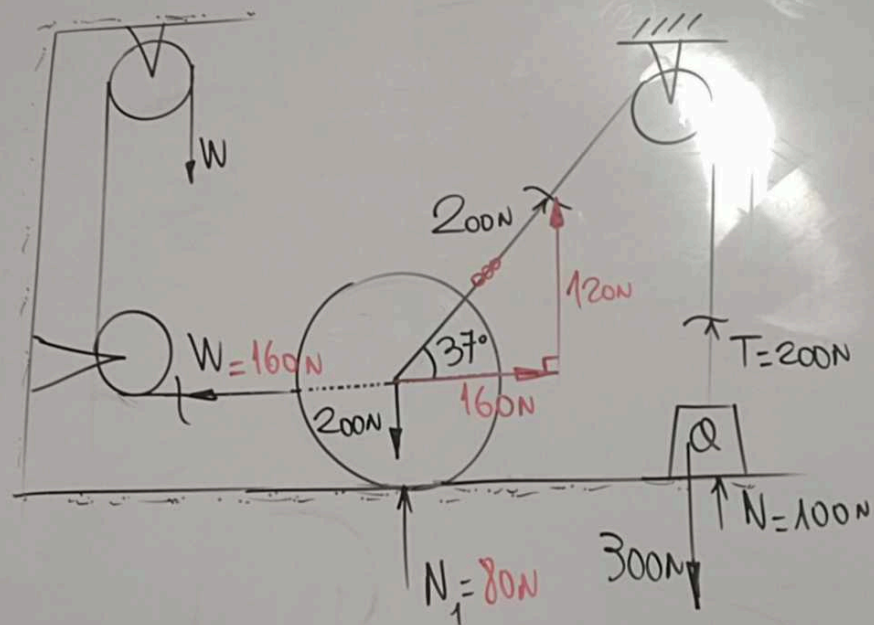 W
200N
120N
37°
W=160N
160N
200N
T=200N
Q
N=100N
300N
N₁=80N